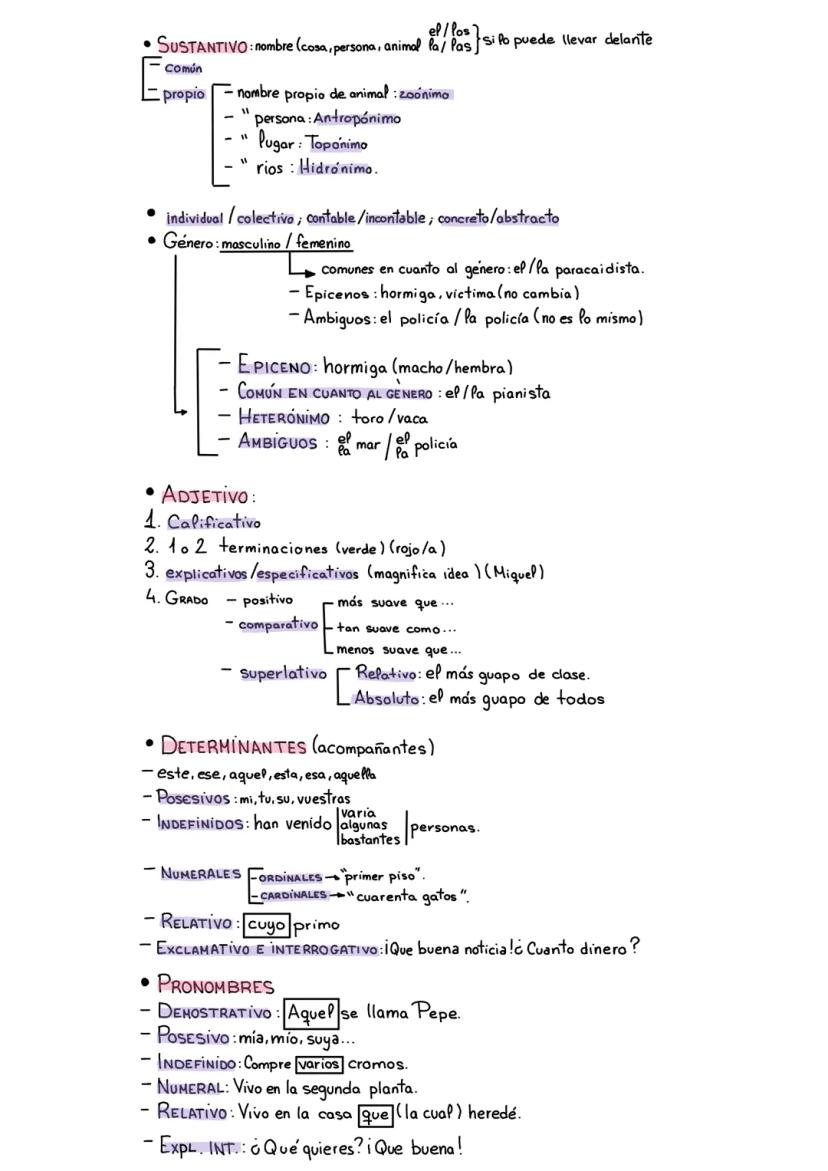 • SUSTANTIVO: nombre (cosa, persona, animal el/los la/las } si lo puede llevar delante
- común
- propio
- nombre propio de animal : zoónimo
- " persona: Antropónimo
- " lugar: Topónimo
- " rios : Hidrónimo.
• individual / colectivo ; contable/incontable ; concreto/abstracto
• Género: masculino / femenino
comunes en cuanto al género: el/la paracaidista.
- Epicenos : hormiga, victima (no cambia)
- Ambiguos: el policía / la policía (no es lo mismo)
- EPICENO: hormiga (macho/hembra)
- COMÚN EN CUANTO AL GÈNERO : el/la pianista
- HETERÓNIMO : toro/vaca
- AMBIGUOS : el la mar / el la policía
• ADJETIVO:
1. Calificativo
2. 1 o 2 terminaciones (verde) (rojo/a)
3. explicativos/especificativos (magnifica idea) (Miguel)
4. GRADO - positivo
- comparativo
más suave que ...
tan suave como...
menos suave que...
- superlativo
Relativo: el más guapo de clase.
Absoluto: el más guapo de todos
• DETERMINANTES (acompañantes)
- este, ese, aquel, esta, esa, aquella
- Posesivos : mi, tu, su, vuestras
- INDEFINIDOS: han venido | varia algunas bastantes | personas.
- NUMERALES
- ORDINALES → "primer piso".
- CARDINALES → "cuarenta gatos".
- RELATIVO : cuyo primo
- EXCLAMATIVO E INTERROGATIVO: ¡Que buena noticia! ¿ Cuanto dinero ?
• PRONOMBRES
- DEMOSTRATIVO : Aquel se llama Pepe.
- POSESIVO : mía, mío, suya...
- INDEFINIDO: Compre varios cromos.
- NUMERAL: Vivo en la segunda planta.
- RELATIVO : Vivo en la casa que (la cual) heredé.
- EXPL. INT.: ¿Qué quieres? ¡Que buena!